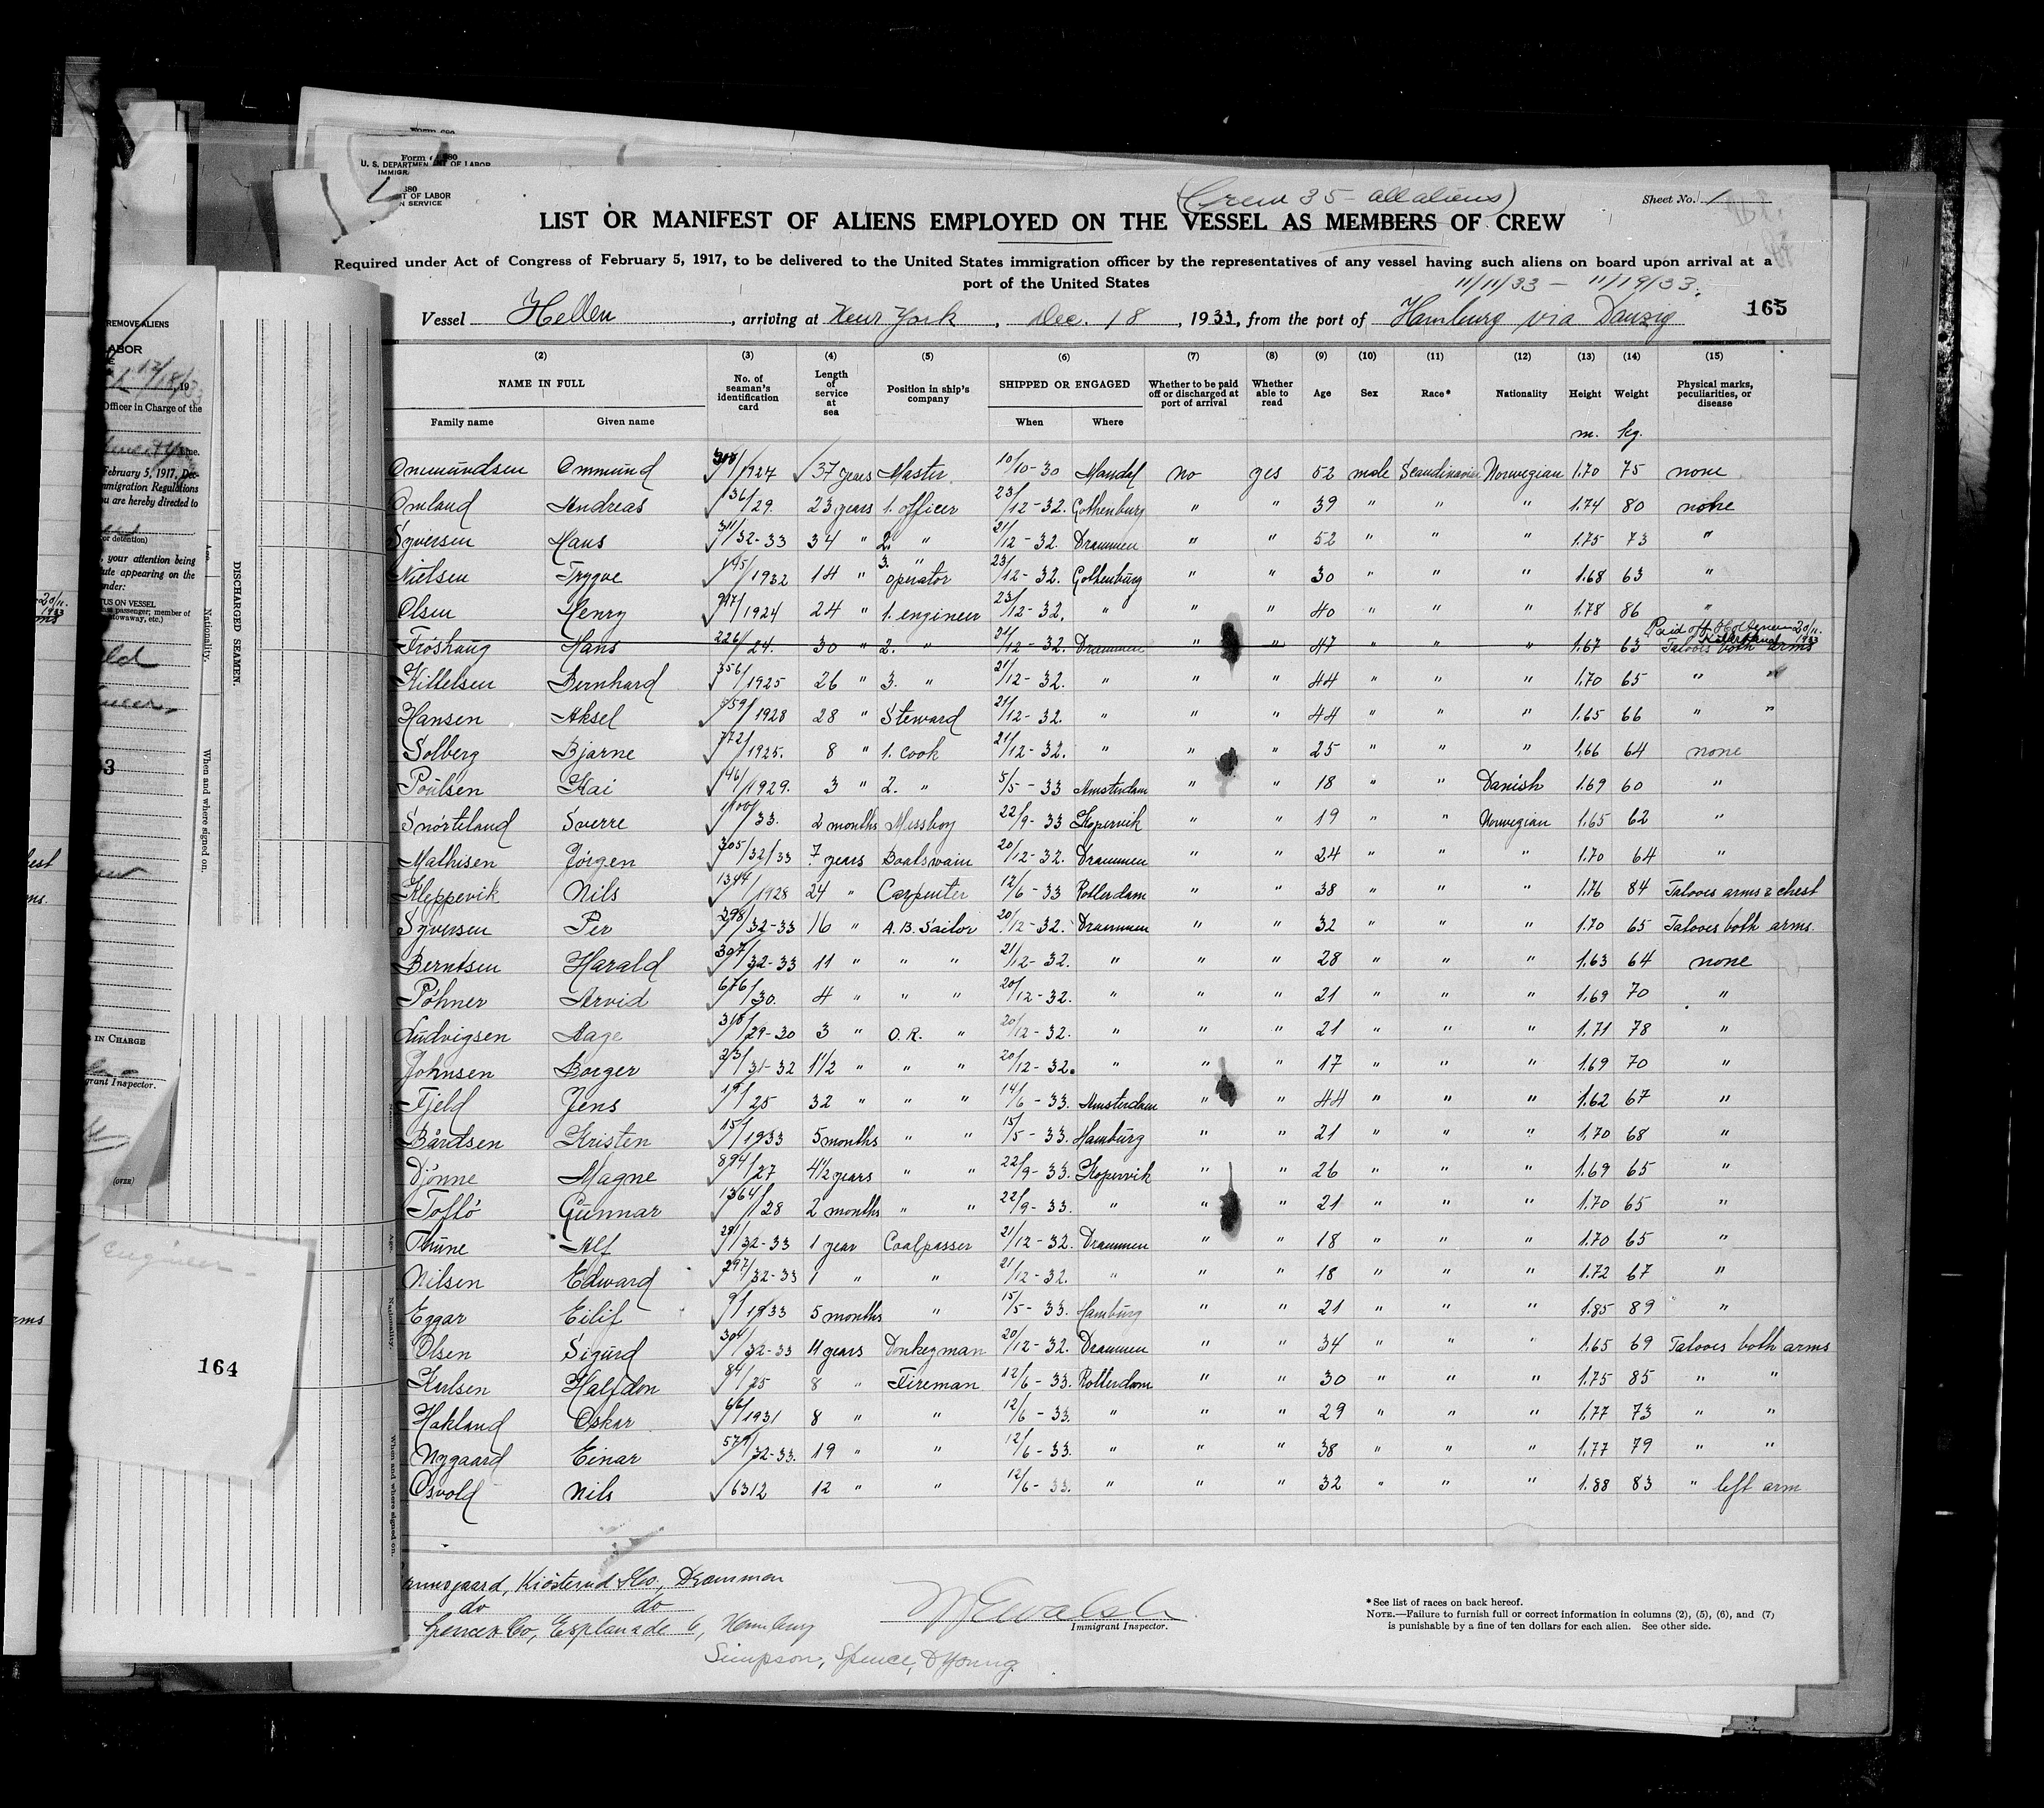 Form 680
U. S. DEPARTMENT OF LABOR
(Crew 35 - all aliens)
Sheet No. 1
LIST OR MANIFEST OF ALIENS EMPLOYED ON THE VESSEL AS MEMBERS OF CREW
Required under Act of Congress of February 5, 1917, to be delivered to the United States immigration officer by the representatives of any vessel having such aliens on board upon arrival at a
port of the United States
11/11/33 — 11/19/33.
Vessel Hellen, arriving at New York, Dec. 18, 1933, from the port of Hamburg via Danzig 165
(2) (3) (4) (5) (6) (7) (8) (9) (10) (11) (12) (13) (14) (15)
NAME IN FULL No. of seaman's identification card Length of service at sea Position in ship's company SHIPPED OR ENGAGED Whether to be paid off or discharged at port of arrival Whether able to read Age Sex Race* Nationality Height Weight Physical marks, peculiarities, or disease
Family name Given name When Where
m. kg.
Ommundsen Ommund 1924 37 years Master 10/10-30 Mandal no yes 52 male Scandinavian Norwegian 1.70 75 none
Omland Andreas 136/29. 23 years 1. officer 23/12-32. Gothenburg " " 39 " " " 1.74 80 none
Syversen Hans 311/32-33 34 " 2. " 21/12-32. Drammen " " 52 " " " 1.75 73 "
Nielsen Trygve 1932 14 " 3. " operator 23/12-32. Gothenburg " " 30 " " " 1.68 63 "
Olsen Henry 1924 24 " 1. engineer 23/12-32. " " " 40 " " " 1.78 86 "
Paid off 20/11. 1933
Fröshaug Hans 226/24. 30 " 2. " 21/12-32. Drammen " " 47 " " " 1.67 63 Tatooes both arms
Kittelsen Bernhard 356/1925 26 " 3. " 21/12-32. " " " 44 " " " 1.70 65 " "
Hansen Aksel 559/1928 28 " Steward 21/12-32. " " " 44 " " " 1.65 66 " "
Solberg Bjarne 772/1925. 8 " 1. cook 21/12-32. " " " 25 " " " 1.66 64 none
Poulsen Kai 146/1929. 3 " 2. " 5/5-33 Amsterdam " " 18 " " Danish 1.69 60 "
Snörteland Sverre 33. 2 months Messboy 22/9-33 Kopervik " " 19 " " Norwegian 1.65 62 "
Mathisen Jörgen 305/32/33 7 years Boatswain 20/12-32. Drammen " " 24 " " " 1.70 64 "
Kleppevik Nils 1344/1928 24 " Carpenter 12/6-33 Rotterdam " " 38 " " " 1.76 84 Tatooes arms & chest
Syversen Per 298/32-33 16 " A.B. Sailor 20/12-32. Drammen " " 32 " " " 1.70 65 Tatooes both arms.
Berntsen Harald 307/32-33 11 " " " 21/12-32. " " " 28 " " " 1.63 64 none
Pöhner Arvid 676/30. 4 " " " 20/12-32. " " " 21 " " " 1.69 70 "
Ludvigsen Aage 29-30 3 " O.R. " 20/12-32. " " " 21 " " " 1.71 78 "
Johnsen Borger 31-32 1 1/2 " " " 20/12-32. " " " 17 " " " 1.69 70 "
Fjeld Jens 25 32 " " " 14/6-33. Amsterdam " " 44 " " " 1.62 67 "
Bårdsen Kristen 15/1933 5 months " " 15/5-33. Hamburg " " 21 " " " 1.70 68 "
Djönne Magne 894/27 4 1/2 years " " 22/9-33. Kopervik " " 26 " " " 1.69 65 "
Toflö Gunnar 1364/28 2 months " " 22/9-33. " " " 21 " " " 1.70 65 "
Thune Alf 32-33 1 year Coalpasser 21/12-32. Drammen " " 18 " " " 1.70 65 "
Nilsen Edward 297/32-33 1 " " 21/12-32. " " " 18 " " " 1.72 67 "
Eggar Eilif 9/1933 5 months " 15/5-33. Hamburg " " 21 " " " 1.85 89 "
Olsen Sigurd 32-33 4 years Donkeyman 20/12-32. Drammen " " 34 " " " 1.65 69 Tatooes both arms
Karlsen Halfdan 84/25 8 " Fireman 12/6-33. Rotterdam " " 30 " " " 1.75 85 " "
Hakland Oskar 46/1931 8 " " 12/6-33. " " " 29 " " " 1.77 73 " "
Nygaard Einar 32-33. 19 " " 12/6-33. " " " 38 " " " 1.77 79 " "
Osvold Nils 6312 12 " " 12/6-33. " " " 32 " " " 1.88 83 " left arm
Kiösterud & Co., Drammen
do do
Spence & Co, Esplanade 6, Hamburg
Simpson, Spence, & Young.
Immigrant Inspector.
* See list of races on back hereof.
NOTE.—Failure to furnish full or correct information in columns (2), (5), (6), and (7)
is punishable by a fine of ten dollars for each alien. See other side.
REMOVE ALIENS
LABOR
12/18/33
Officer in Charge of the
February 5, 1917,
Immigration Regulations
you are hereby directed to
(or detention)
, your attention being
appearing on the
STATUS ON VESSEL
passenger; member of
stowaway, etc.)
IN CHARGE
Immigrant Inspector.
(OVER)
DISCHARGED SEAMEN.
Age.
Nationality.
When and where signed on.
Engineer
164
Age.
Nationality.
When and where signed on.